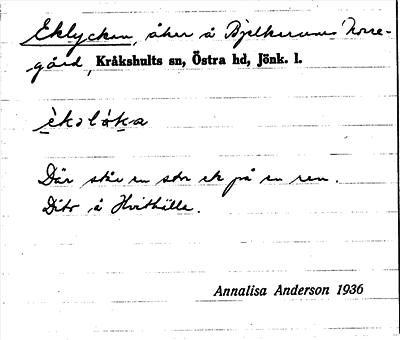 Eklyckan, åker å Bjelkerums Norre-
gård, Kråkshults sn, Östra hd, Jönk. l.
èkəlỳka
Där står en stor ek på en ren.
Dito å Hvithälla.
Annalisa Anderson 1936